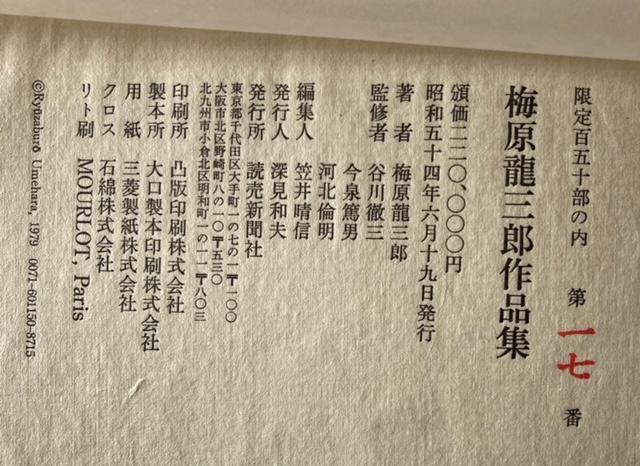 限定百五十部の内　第一七番
梅原龍三郎作品集
頒価二二〇、〇〇〇円
昭和五十四年六月十九日発行
著者　梅原龍三郎
監修者　谷川徹三
今泉篤男
河北倫明
編集人　笠井晴信
発行人　深見和夫
発行所　読売新聞社
東京都千代田区大手町一の七の一〒一〇〇
大阪市北区野崎町八の一〇〒五三〇
北九州市小倉北区明和町一の一一〒八〇三
印刷所　凸版印刷株式会社
製本所　大口製本印刷株式会社
用紙　三菱製紙株式会社
クロス　石綿株式会社
リト刷　MOURLOT, Paris
©Ryūzaburō Umehara, 1979　0071-601150-8715